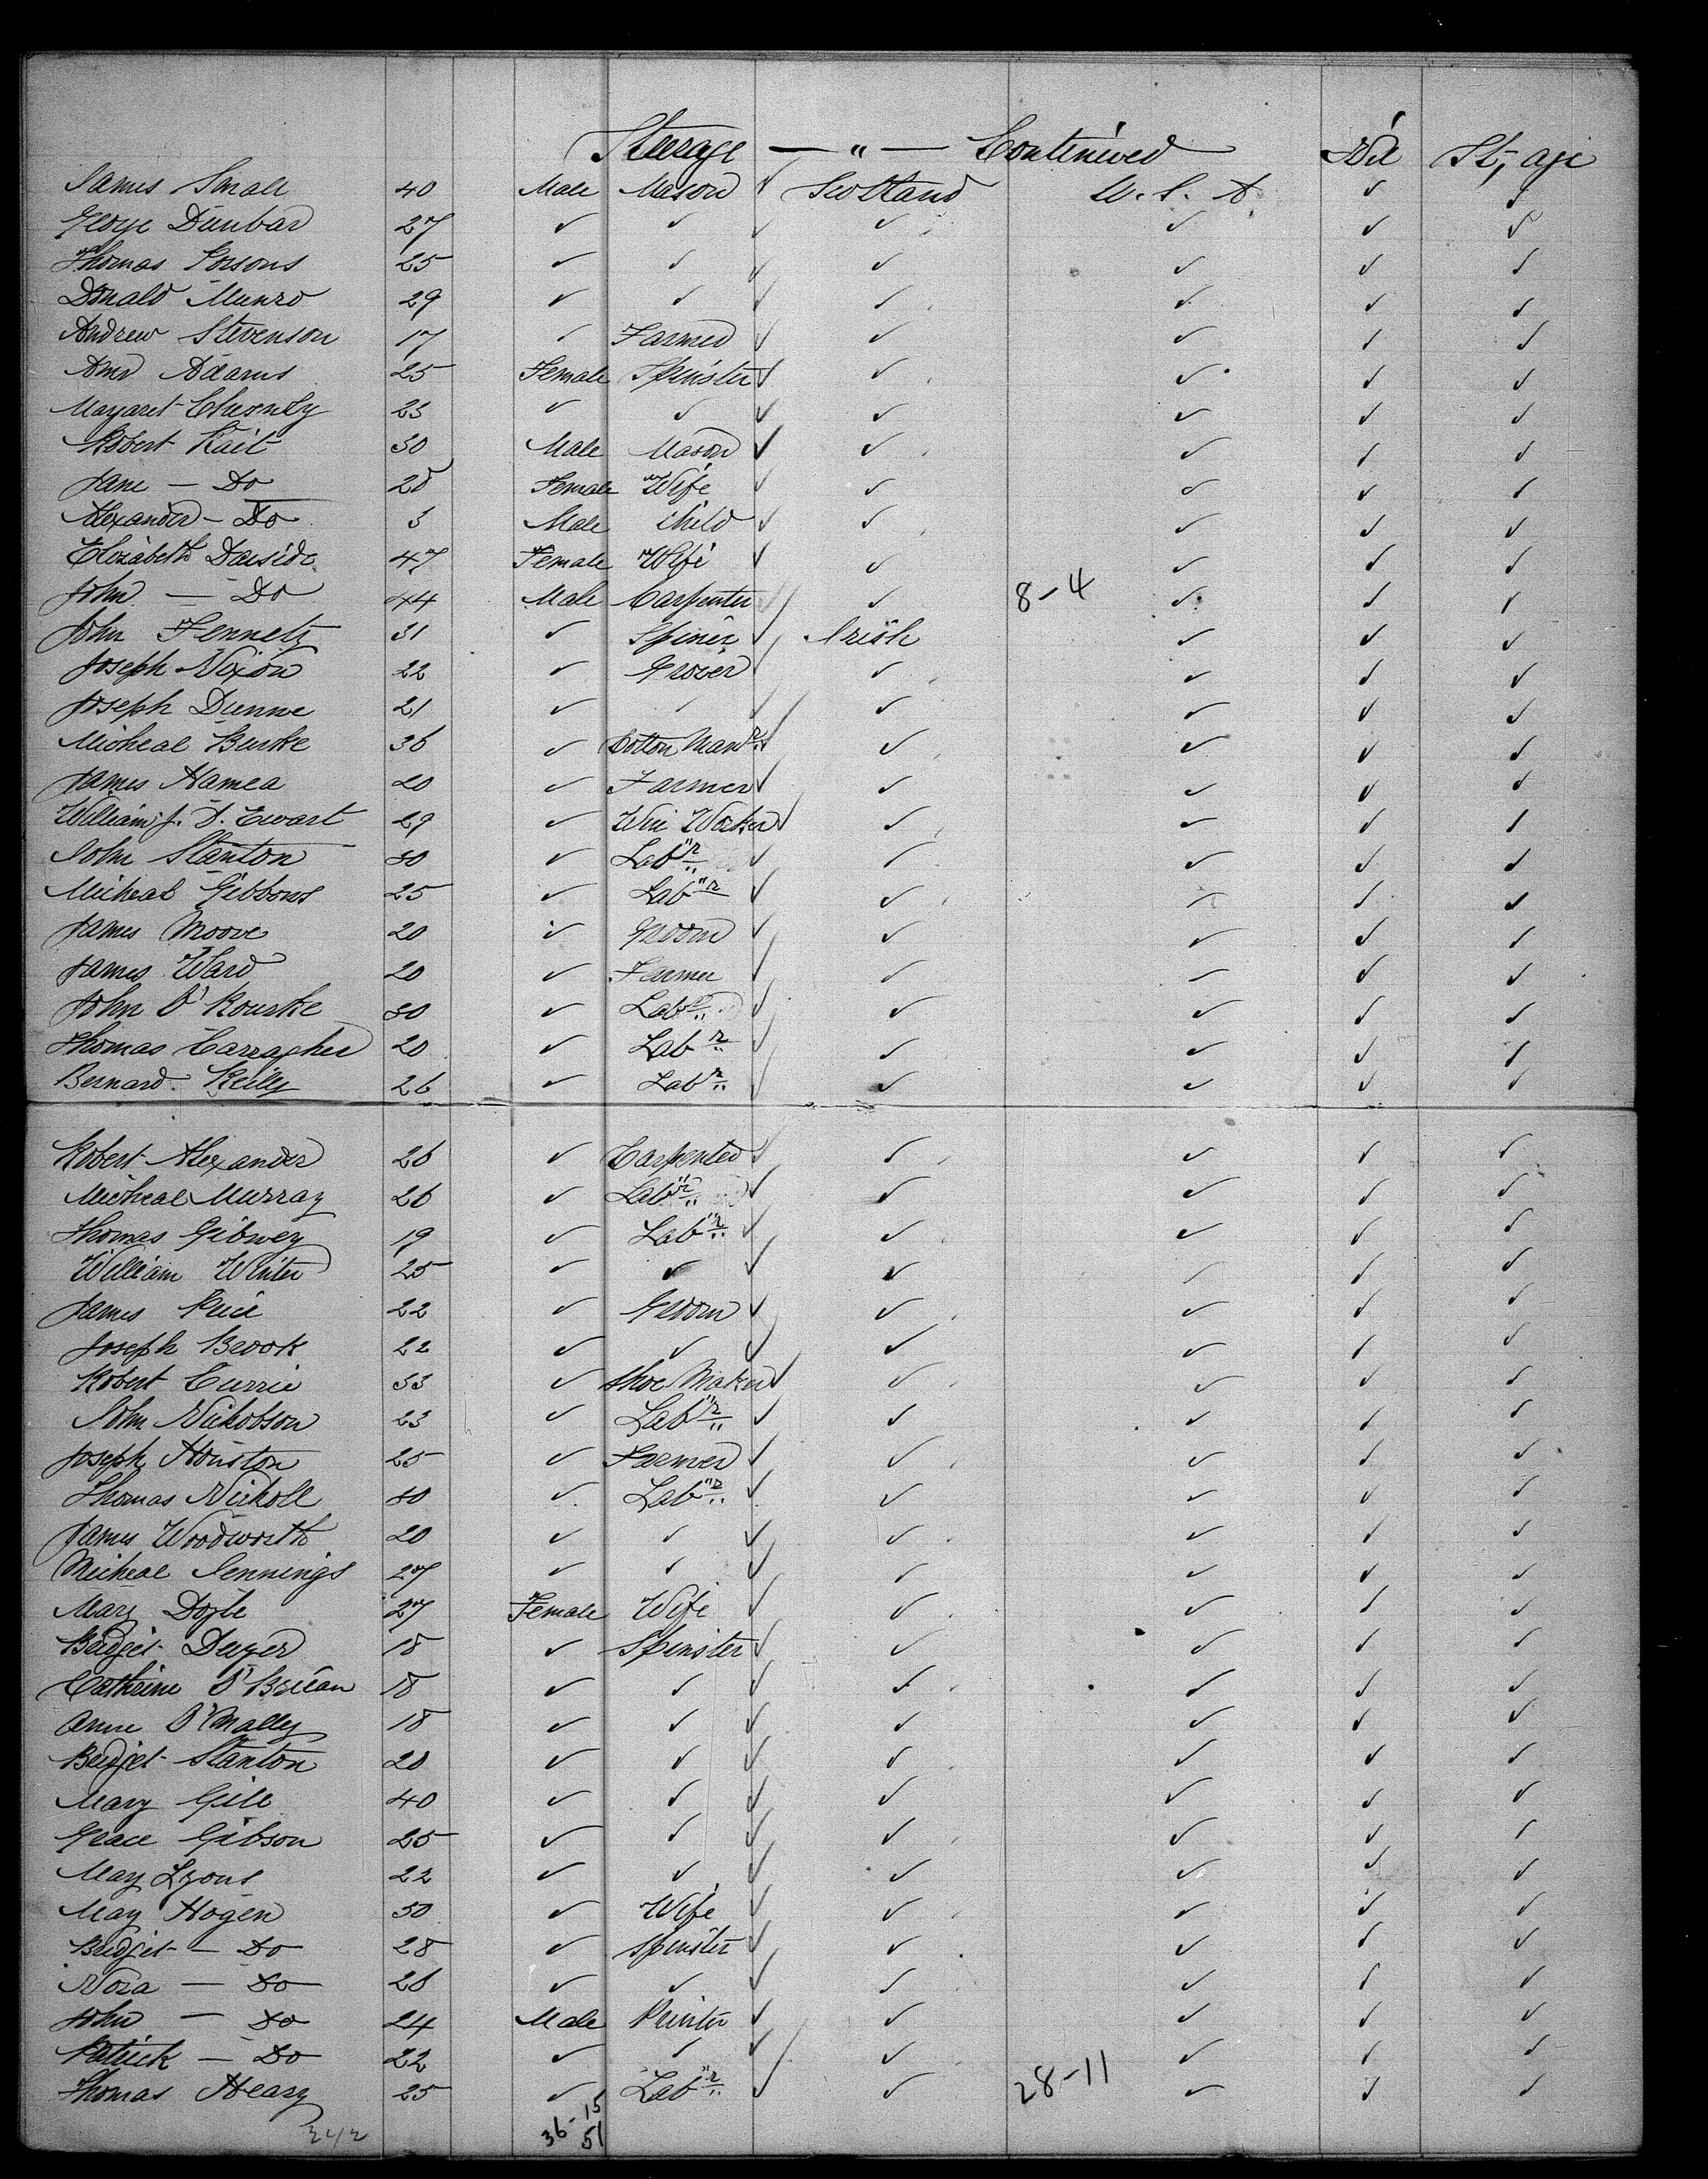 Steerage — " — Continued Nil St, age
James Small 40 Male Mason ✓ Scotland U. S. A ✓ ✓
George Dunbar 27 ✓ ✓ ✓ ✓ ✓ ✓ ✓
Thomas 25 ✓ ✓ ✓ ✓ ✓ ✓ ✓
Donald Munro 29 ✓ ✓ ✓ ✓ ✓ ✓ ✓
Andrew Stevenson 17 ✓ Farmer ✓ ✓ ✓ ✓ ✓
Ann Adams 25 Female Spinster ✓ ✓ ✓ ✓ ✓
Margaret 23 ✓ ✓ ✓ ✓ ✓ ✓ ✓
Robert Kait 30 Male Mason ✓ ✓ ✓ ✓ ✓
Jane — Do 28 Female Wife ✓ ✓ ✓ ✓ ✓
Alexander — Do 3 Male Child ✓ ✓ ✓ ✓ ✓
Elizabeth 47 Female Wife ✓ ✓ ✓ ✓ ✓
John — Do 44 Male Carpenter ✓ ✓ 8-4 ✓ ✓ ✓
John 31 ✓ Spiner ✓ Irish ✓ ✓ ✓
Joseph Nixon 22 ✓ Grocer ✓ ✓ ✓ ✓ ✓
Joseph Dunne 21 ✓ ✓ ✓ ✓ ✓ ✓ ✓
Micheal Burke 36 ✓ Cotton Manr ✓ ✓ ✓ ✓ ✓
James Namea 20 ✓ Farmer ✓ ✓ ✓ ✓ ✓
William J. D. Ewart 29 ✓ Wire Worker ✓ ✓ ✓ ✓ ✓
John Stanton 30 ✓ Lab"r ✓ ✓ ✓ ✓ ✓
Micheal Gibbons 25 ✓ Lab"r ✓ ✓ ✓ ✓ ✓
James Moore 20 ✓ Groom ✓ ✓ ✓ ✓ ✓
James Ward 20 ✓ Farmer ✓ ✓ ✓ ✓ ✓
John O'Rourke 30 ✓ Labr ✓ ✓ ✓ ✓ ✓
Thomas Carragher 20 ✓ Lab r ✓ ✓ ✓ ✓ ✓
Bernard Reilly 26 ✓ Labr ✓ ✓ ✓ ✓ ✓
Robert Alexander 26 ✓ Carpenter ✓ ✓ ✓ ✓ ✓
Micheal Murray 26 ✓ Lab"r ✓ ✓ ✓ ✓ ✓
Thomas Gibney 19 ✓ Lab"r ✓ ✓ ✓ ✓ ✓
William Winter 25 ✓ ✓ ✓ ✓ ✓ ✓ ✓
James Price 22 ✓ Groom ✓ ✓ ✓ ✓ ✓
Joseph Brook 22 ✓ ✓ ✓ ✓ ✓ ✓ ✓
Robert Currie 33 ✓ Shoe Maker ✓ ✓ ✓ ✓ ✓
John Nickobson 23 ✓ Lab"r ✓ ✓ ✓ ✓ ✓
Joseph Houston 25 ✓ Farmer ✓ ✓ ✓ ✓ ✓
Thomas Nickoll 30 ✓ Lab"r ✓ ✓ ✓ ✓ ✓
James Woodworth 20 ✓ ✓ ✓ ✓ ✓ ✓ ✓
Micheal Jennings 27 ✓ ✓ ✓ ✓ ✓ ✓ ✓
Mary Doyle 27 Female Wife ✓ ✓ ✓ ✓ ✓
Bridget Dwyer 18 ✓ Spinster ✓ ✓ ✓ ✓ ✓
Catherine O'Briean 18 ✓ ✓ ✓ ✓ ✓ ✓ ✓
Anne O'Mally 18 ✓ ✓ ✓ ✓ ✓ ✓ ✓
Bridget Stanton 20 ✓ ✓ ✓ ✓ ✓ ✓ ✓
Mary Gill 40 ✓ ✓ ✓ ✓ ✓ ✓ ✓
Grace Gibson 25 ✓ ✓ ✓ ✓ ✓ ✓ ✓
Mary Lyons 22 ✓ ✓ ✓ ✓ ✓ ✓ ✓
Mary Hogen 50 ✓ Wife ✓ ✓ ✓ ✓ ✓
Bridget — Do 28 ✓ Spinster ✓ ✓ ✓ ✓ ✓
Nora — Do 26 ✓ ✓ ✓ ✓ ✓ ✓ ✓
John — Do 24 Male Printer ✓ ✓ ✓ ✓ ✓
Patrick — Do 22 ✓ ✓ ✓ ✓ ✓ ✓ ✓
Thomas Heary 25 ✓ Lab"r ✓ ✓ 28-11 ✓ ✓ ✓
242 36-15
51